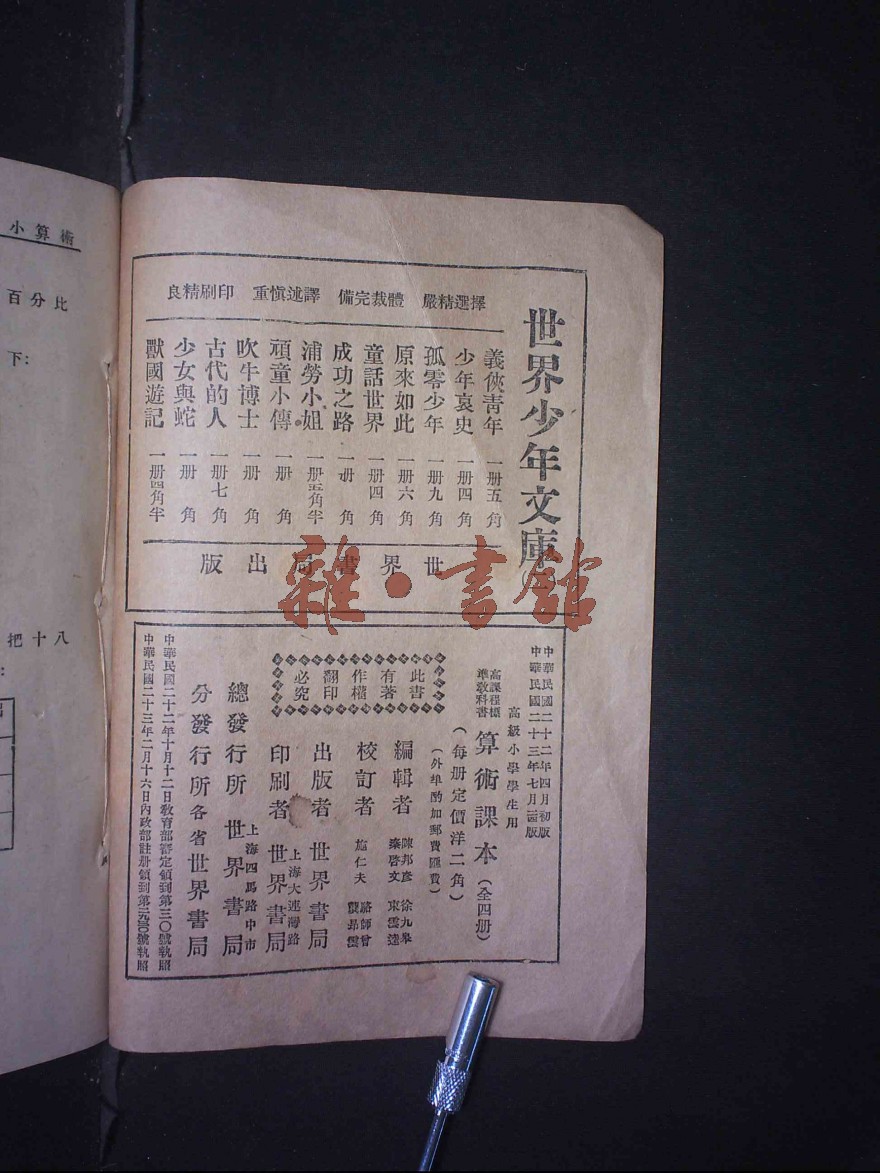 世界少年文庫
擇選精嚴 體裁完備 譯述慎重 印刷精良
義俠青年 一册五角
少年哀史 一册四角
孤零少年 一册九角
原來如此 一册六角
童話世界 一册四角
成功之路 一册 角
浦勞小姐 一册五角半
頑童小傳 一册 角
吹牛博士 一册 角
古代的人 一册七角
少女與蛇 一册 角
獸國遊記 一册四角半
世界書局出版
中華民國二十二年四月初版
中華民國二十三年七月 版
高級小學學生用
高課程標
準教科書
算術課本（全四册）
（每册定價洋二角）
（外埠酌加郵費匯費）
此書
有著
作權
翻印
必究
編輯者 陳邦彥 徐九皋
秦啓文 束雲逵
校訂者 施仁夫 駱師曾
龔昂雲
出版者 世界書局
印刷者 上海大連灣路 世界書局
總發行所 上海四馬路中市 世界書局
分發行所 各省世界書局
中華民國二十二年十月十二日教育部審定領到第三〇號執照
中華民國二十三年二月十六日內政部註册領到第 號執照
小算術
百分比
下：
把十八
雜·書館